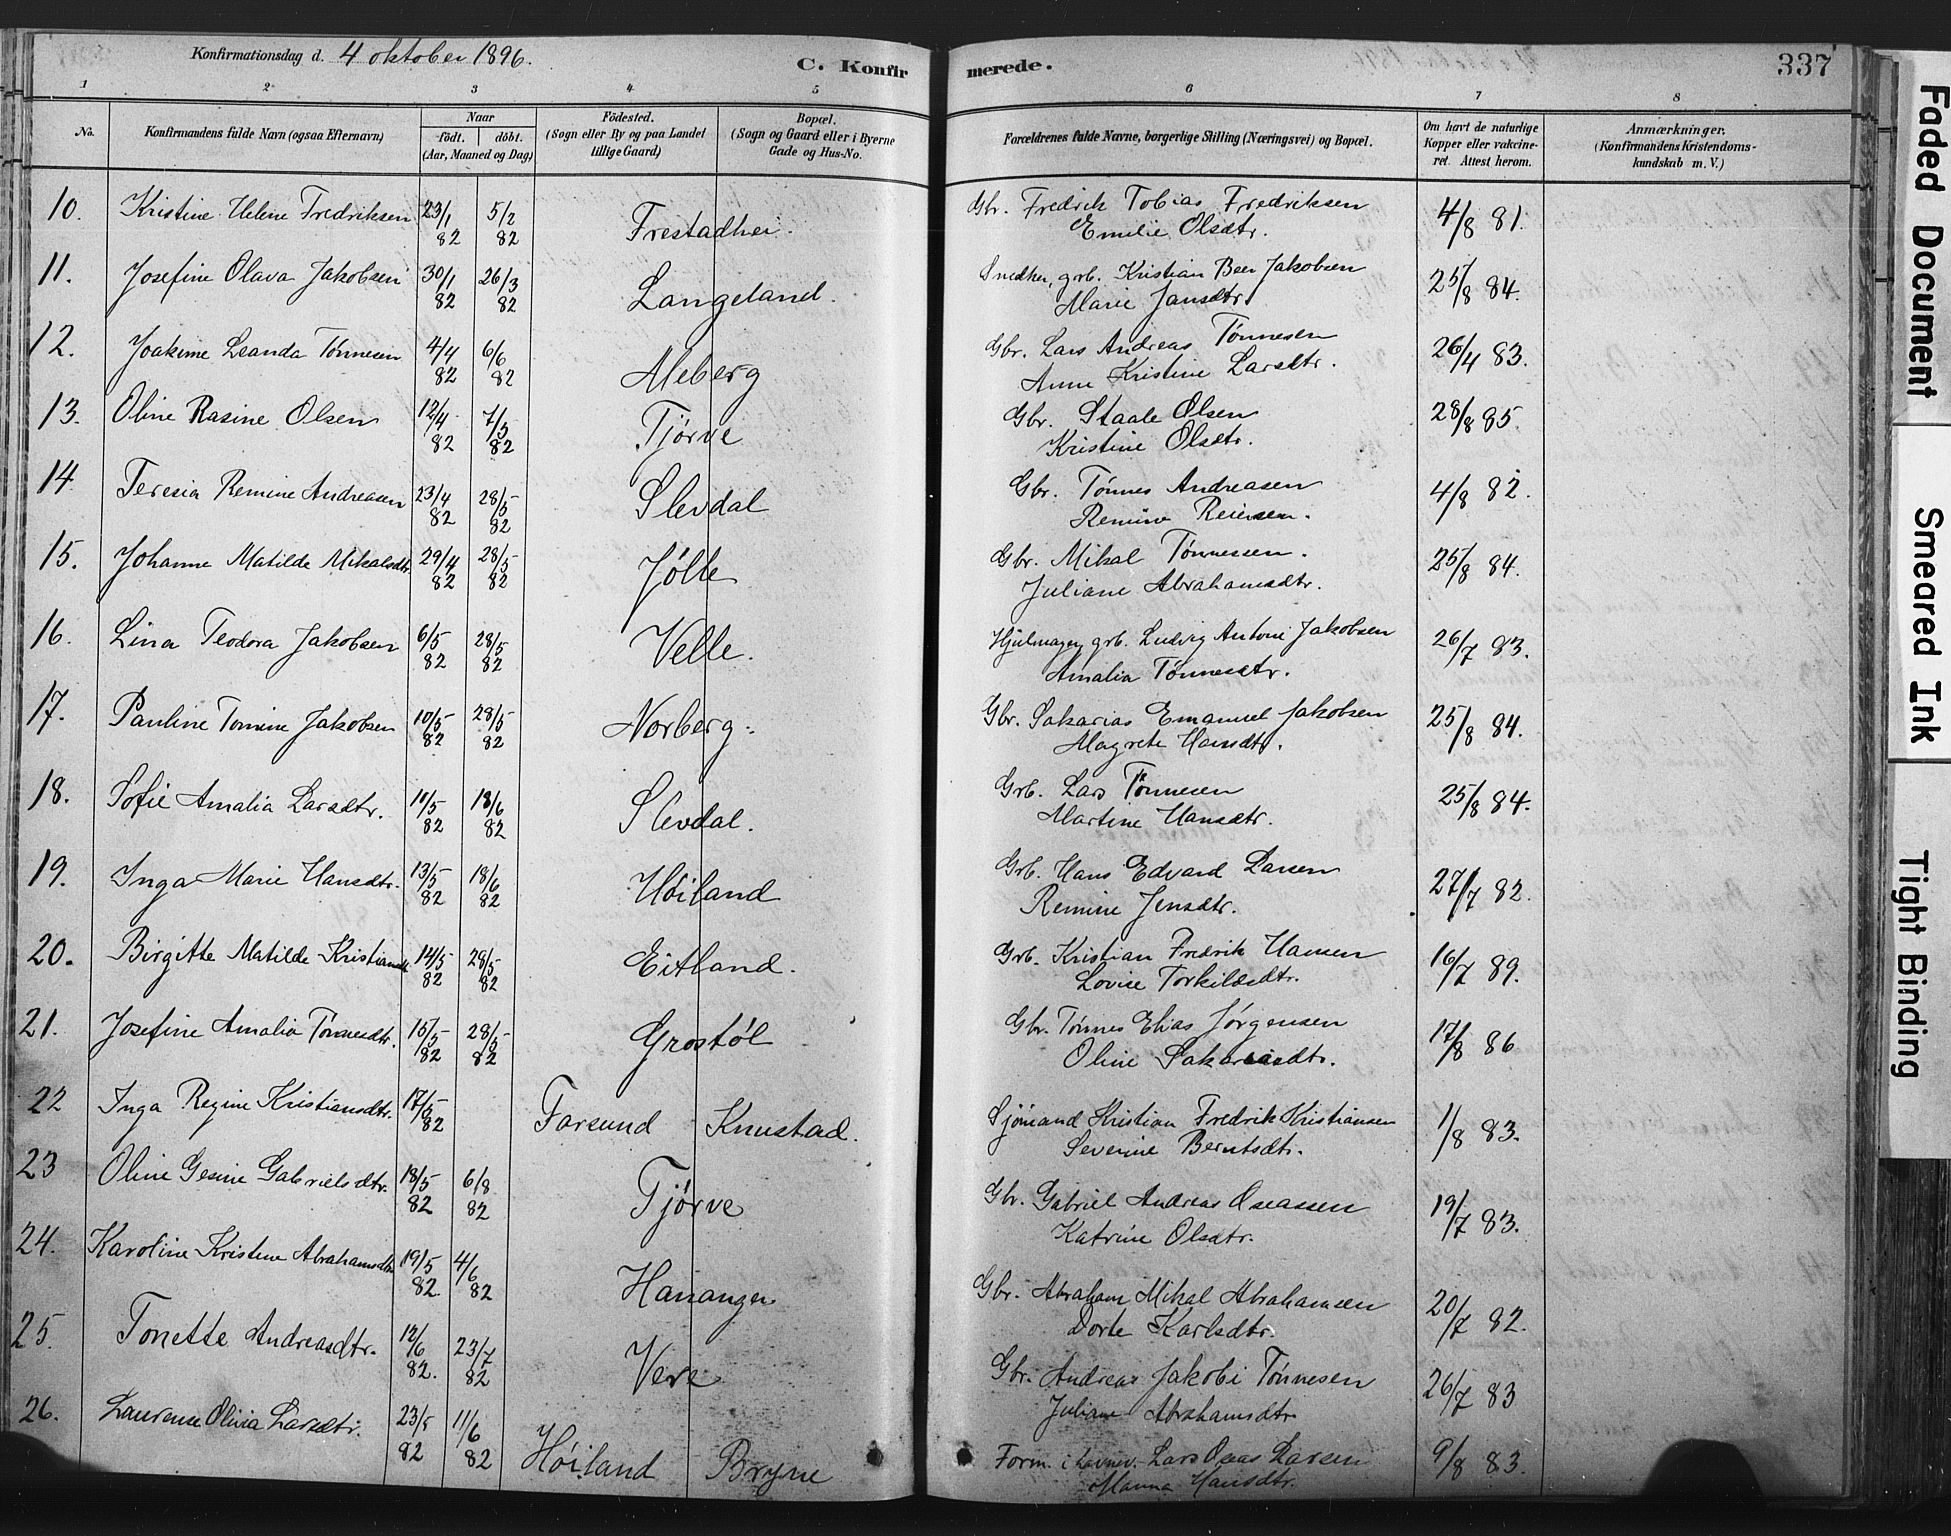 Konfirmationsdag d. 4 oktober 1896.
C. Konfirmerede.
337
1 2 3 4 5 6 7 8
No.
Konfirmandens fulde Navn (ogsaa Efternavn)
Naar
født. døbt.
(Aar, Maaned og Dag)
Fødested.
(Sogn eller By og paa Landet tillige Gaard)
Bopæl.
(Sogn og Gaard eller i Byerne Gade og Hus-No.
Forældrenes fulde Navne, borgerlige Stilling (Næringsvei) og Bopæl.
Om havt de naturlige Kopper eller vakcineret. Attest herom.
Anmærkninger.
(Konfirmandens Kristendomskundskab m. V.)
10. Kristine Helene Fredriksen 23/1 82 5/2 82 Frestadhei. Gbr. Fredrik Tobias Fredriksen 4/8 81.
Emilie Olsdtr.
11. Josefine Olava Jakobsen 30/1 82 26/3 82 Langeland. Snedker, grb. Kristian Beer Jakobsen 25/8 84.
Marie Jansdtr.
12. Joakime Leanda Tønnesen 4/4 82 6/6 82 Meberg Gbr. Lars Andreas Tønnesen 26/4 83.
Anne Kristine Larsdtr.
13. Oline Rasine Olsen 12/4 82 7/5 82 Tjørve Gbr. Staale Olsen 28/8 85.
Kristine Olsdtr.
14 Teresia Remine Andreasen 23/4 82 28/5 82 Slevdal Gbr. Tønnes Andreasen 4/8 82.
Remine Reiersen.
15. Johanne Matilde Mikalsdtr. 29/4 82 28/5 82 Jølle Gbr. Mikal Tønnessen. 25/8 84.
Juliane Abrahamsdtr.
16. Lina Teodora Jakobsen 6/5 82 28/5 82 Velle. Hjulmager, grb. Ludvig Antoni Jakobsen 26/7 83.
Amalia Tønnesdtr.
17. Pauline Tomine Jakobsen 10/5 82 28/5 82 Norberg. Gbr. Sakarias Emanuel Jakobsen 25/8 84.
Magrete Hansdtr.
18. Sofie Amalia Larsdtr. 11/5 82 18/6 82 Slevdal. Grb. Lars Tønnesen 25/8 84.
Martine Hansdtr.
19. Inga Marie Hansdtr. 13/5 82 18/6 82 Høiland Grb. Hans Edvard Larsen 27/7 82.
Remine Jensdtr.
20. Birgitte Matilde Kristiansdtr 14/5 82 28/5 82 Eitland. Grb. Kristian Fredrik Hansen 16/7 89.
Lovise Torkildsdtr.
21. Josefine Amalia Tønnesdtr. 15/5 82 28/5 82 Grostøl Gbr. Tønnes Elias Jørgensen 17/8 86
Oline Sakariasdtr.
22 Inga Regine Kristiansdtr. 17/5 82 Farsund Knustad. Sjømand Kristian Fredrik Kristiansen 1/8 83.
Severine Berntsdtr.
23 Oline Gesine Gabrielsdtr. 18/5 82 6/8 82 Tjørve Gbr. Gabriel Andreas Oseassen 19/7 83.
Katrine Olsdtr.
24. Karoline Kristine Abrahamsdtr 19/5 82. 4/6 82 Hananger Gbr. Abraham Mikal Abrahamsen 20/7 82.
Dorte Karlsdtr.
25. Tonette Andreasdtr. 12/6 82. 23/7 82 Vere Gbr. Andreas Jakobi Tønnesen 26/7 83
Juliane Abrahamsdtr.
26. Laurense Olivia Larsdtr. 23/5 82 11/6 82 Høiland Bryne Form. i Lars Oseas Larsen 9/8 83.
Manna Hansdtr.
Faded Document
Smeared Ink
Tight Binding